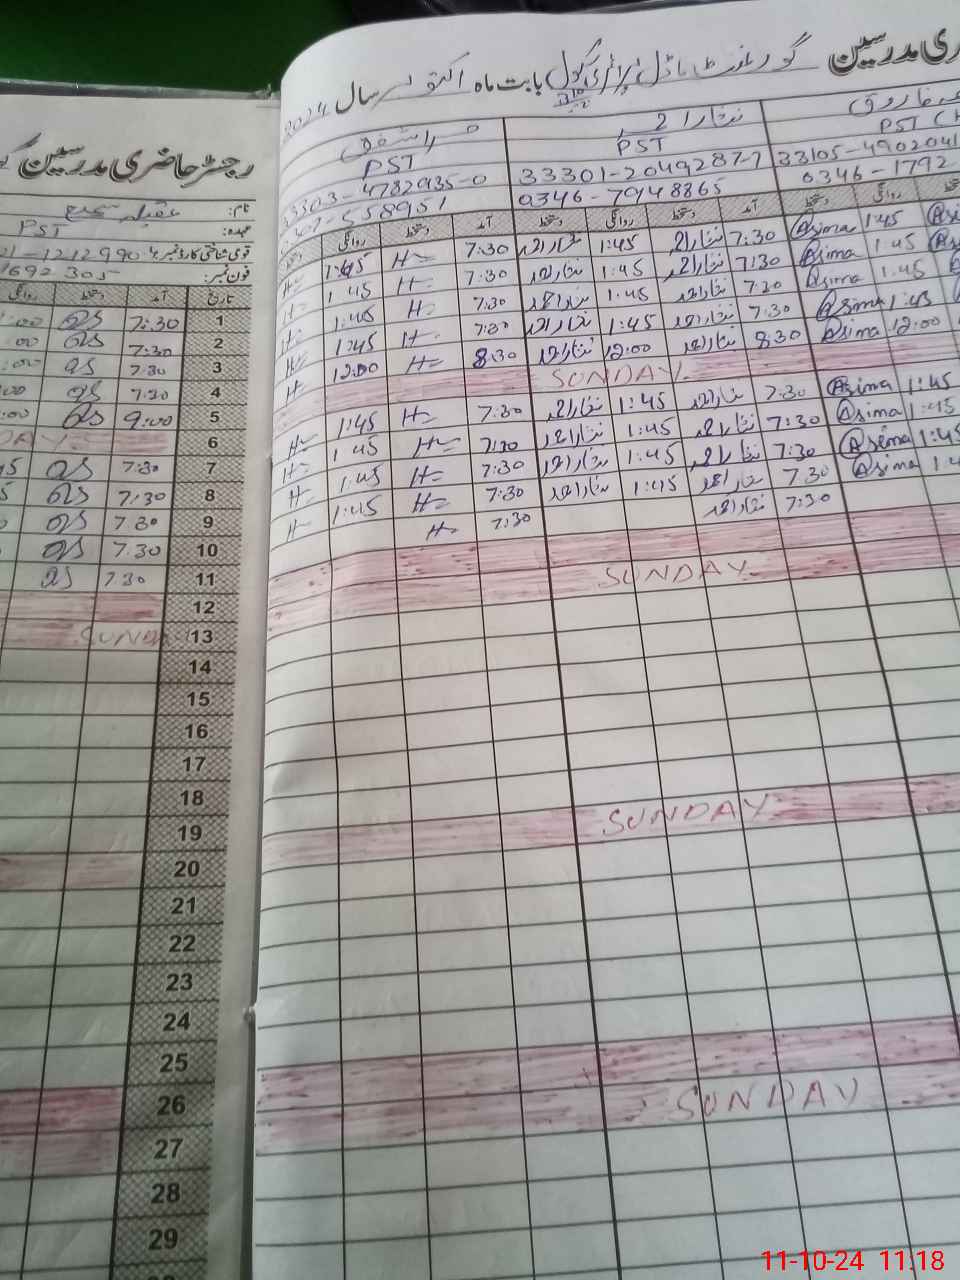 رجسٹر حاضری مدرسین
نام:
عہدہ: PST
قومی شناختی کارڈ نمبر:
فون نمبر: 1692305
روانگی دستخط آمد تاریخ
:00 as 7:30 1
:00 as 7:30 2
:00 as 7.30 3
:00 as 7:30 4
:00 as 9:00 5
DAY 6
45 as 7:30 7
as 7:30 8
as 7.30 9
as 7.30 10
as 7.30 11
12
SUNDA 13
14
15
16
17
18
19
20
21
22
23
24
25
26
27
28
29
ری مدرسین گورنمنٹ ماڈل پرائمری سکول بابت ماہ اکتوبر سال 2024
نثار احمد فاروق
PST PST PST
33303-4782935-0 33301-2049287-7 33105-4902041
0346-7948865 0346-1792
دستخط روانگی دستخط آمد دستخط روانگی دستخط آمد دستخط روانگی
H 1:45 H 7:30 نثار احمد 1:45 نثار احمد 7:30 Asima 1:45
H 1:45 H 7:30 نثار احمد 1:45 نثار احمد 7:30 Asima 1:45
H 1:45 H 7:30 نثار احمد 1:45 نثار احمد 7:30 Asima 1:45
H 1:45 H 7:30 نثار احمد 1:45 نثار احمد 7:30 Asima 1:45
H 12:00 H 8:30 نثار احمد 12:00 نثار احمد 8:30 Asima 12:00
SUNDAY
H 1:45 H 7:30 نثار احمد 1:45 نثار احمد 7:30 Asima 1:45
H 1:45 H 7:30 نثار احمد 1:45 نثار احمد 7:30 Asima 1:45
H 1:45 H 7:30 نثار احمد 1:45 نثار احمد 7:30 Asima 1:45
H 1:45 H 7:30 نثار احمد 1:45 نثار احمد 7:30 Asima
H 7:30 نثار احمد 7:30
SUNDAY
SUNDAY
SUNDAY
11-10-24 11:18